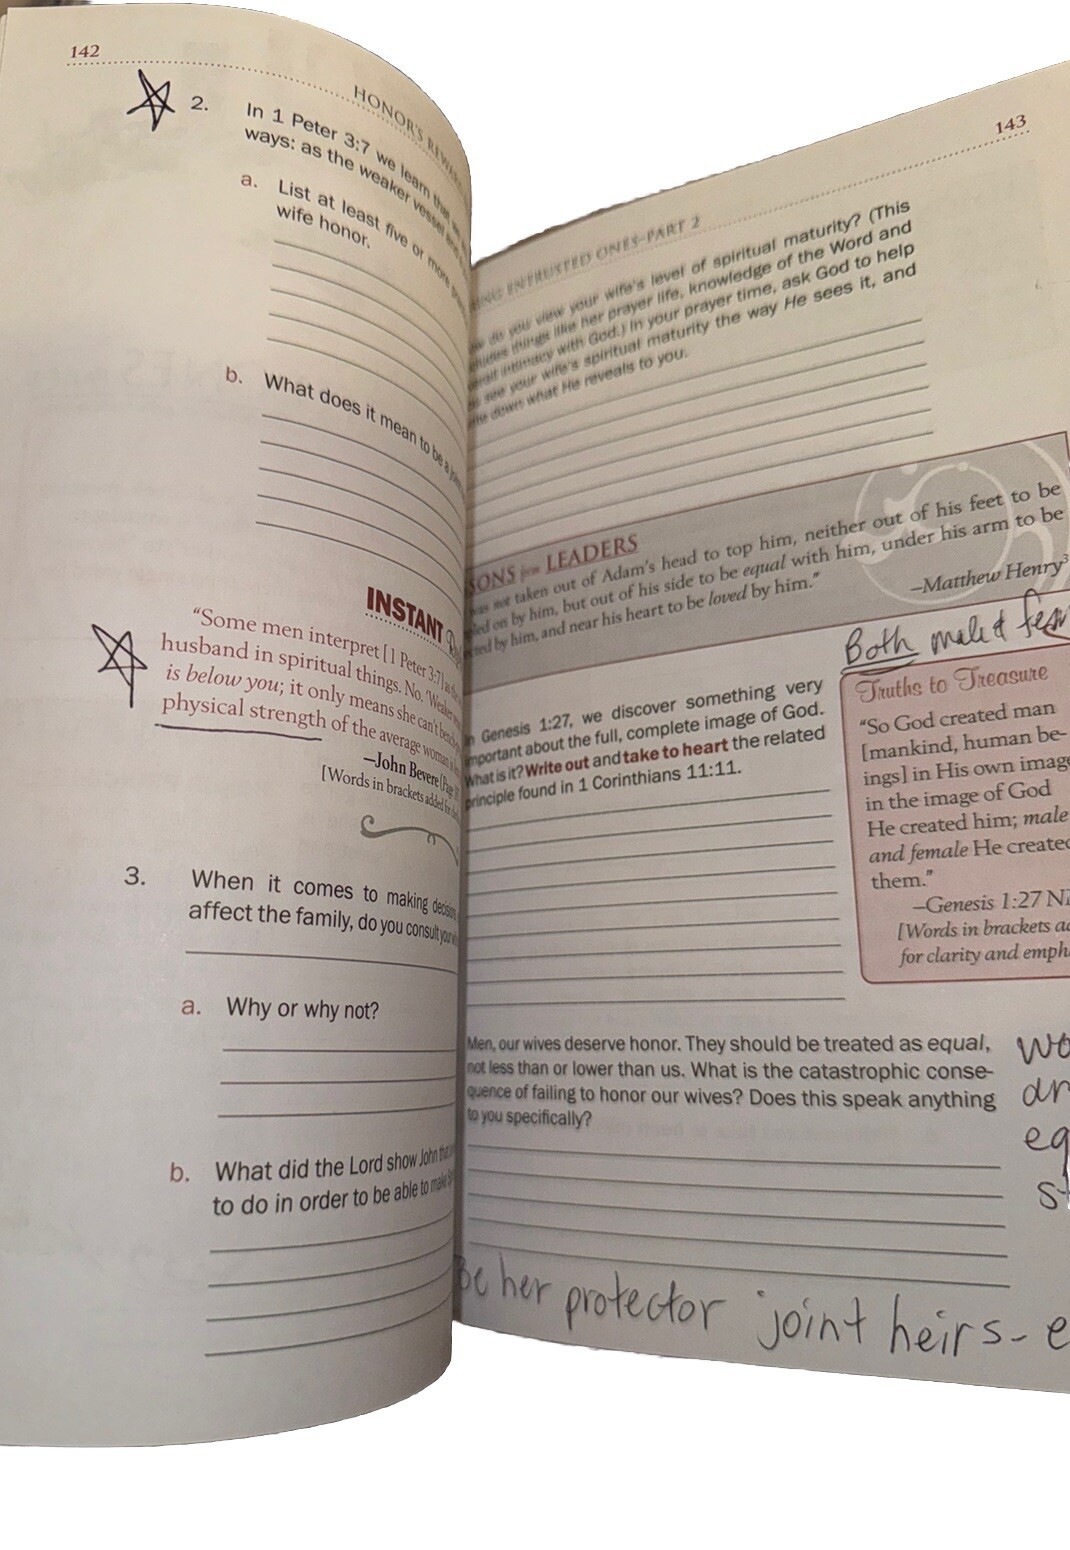 142
HONOR'S REWARD
2. In 1 Peter 3:7 we learn that
ways: as the weaker vessel and
a. List at least five or more
wife honor.
b. What does it mean to be a
INSTANT
"Some men interpret [1 Peter 3:7] as the
husband in spiritual things. No. 'Weaker
is below you; it only means she can't bench
physical strength of the average woman is
—John Bevere (Page
[Words in brackets added for
3. When it comes to making decisions
affect the family, do you consult your
a. Why or why not?
b. What did the Lord show John that
to do in order to be able to make
143
ENTRUSTED ONES–PART 2
do you view your wife's level of spiritual maturity? (This
things like her prayer life, knowledge of the Word and
intimacy with God.) In your prayer time, ask God to help
see your wife's spiritual maturity the way He sees it, and
down what He reveals to you.
SONS from LEADERS
was not taken out of Adam's head to top him, neither out of his feet to be
on by him, but out of his side to be equal with him, under his arm to be
by him, and near his heart to be loved by him."
–Matthew Henry³
Both male &
In Genesis 1:27, we discover something very
important about the full, complete image of God.
What is it? Write out and take to heart the related
principle found in 1 Corinthians 11:11.
Truths to Treasure
"So God created man
[mankind, human be-
ings] in His own image
in the image of God
He created him; male
and female He created
them."
–Genesis 1:27
[Words in brackets
for clarity and
Men, our wives deserve honor. They should be treated as equal,
not less than or lower than us. What is the catastrophic conse-
quence of failing to honor our wives? Does this speak anything
to you specifically?
wo
ar
eq
st
Be her protector joint heirs- e